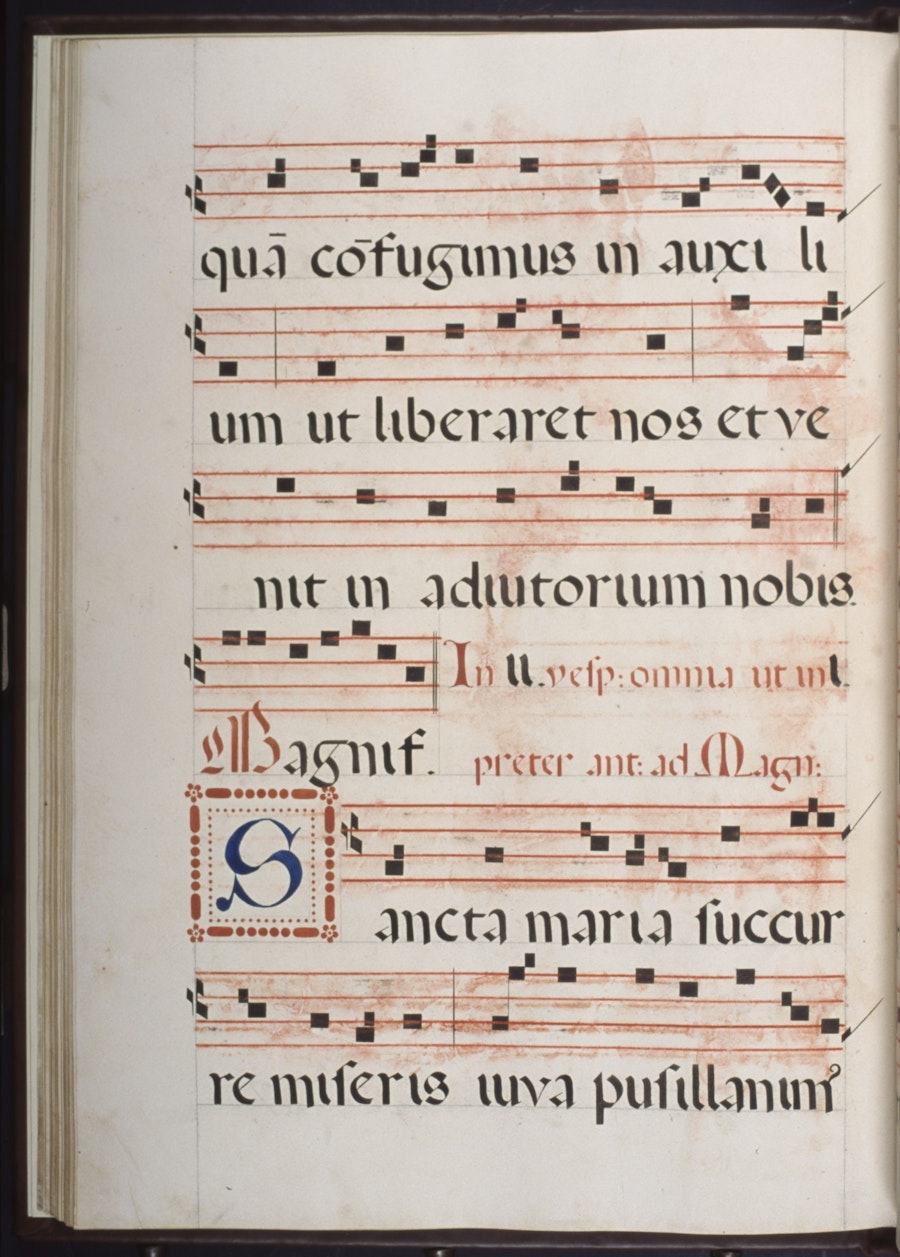 quā cōfugimus in auxi li
um ut liberaret nos et ve
nit in adiutorium nobis.
In II. vesp: omnia ut in I.
Magnif. preter ant: ad Magn:
Sancta maria ſuccur
re miſeris iuva puſillanim⁹